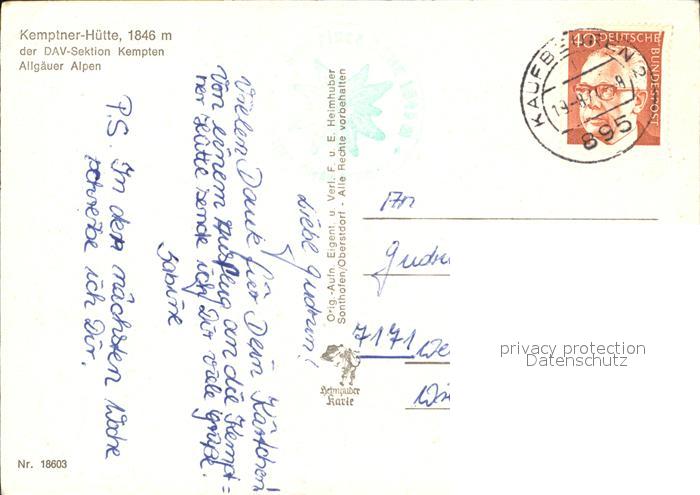 Kemptner-Hütte, 1846 m
der DAV-Sektion Kempten
Allgäuer Alpen
Liebe Gudrun!
Vielen Dank für Dein Kärtchen!
Von einem Ausflug an die Kempt=
ner Hütte sende ich Dir viele Grüße.
Sabine
P.S. In der nächsten Woche
schreibe ich Dir.
Nr. 18603
Orig.-Aufn. Eigent. u. Verl. F. u. E. Heimhuber
Sonthofen/Oberstdorf - Alle Rechte vorbehalten
Heimhuber
Karte
40 DEUTSCHE
BUNDESPOST
KAUFBEUREN 2
895
An
7171
privacy protection
Datenschutz